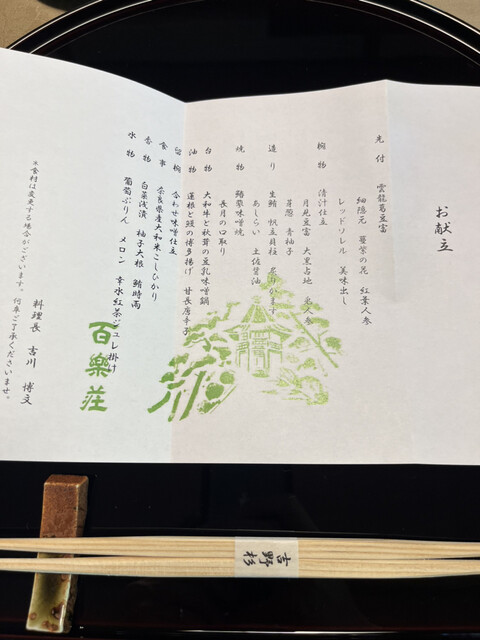 お献立
先付 雲龍葛豆富
細隠元 蔓紫の花 紅葉人参
レッドソレル 美味出し
椀物 清汁仕立
月見豆富 大黒占地 人参
芽葱 青柚子
造り 生鮪 帆立貝柱
あしらい 土佐醤油
焼物 鰆擬味噌焼
長月の口取り
台物 大和牛と秋茸の豆乳味噌鍋
油物 蓮根と鰻の博多揚げ 甘長唐辛子
留椀 合わせ味噌仕立
食事 奈良県産大和米こしひかり
香物 白菜浅漬 柚子大根 鮪時雨
水物 葡萄ぷりん メロン 幸水紅茶ジュレ掛け
※食材は変更する場合がございます。何卒ご了承くださいませ。
料理長 古川 博文
百楽荘
吉野杉